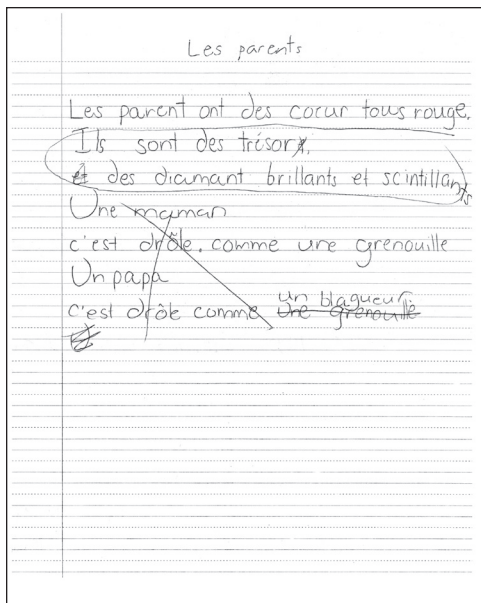 Les parents
Les parent ont des coeur tous rouge.
Ils sont des trésor
des diamant brillants et scintillants
Une maman
c'est drôle. comme une grenouille
Un papa
c'est drôle comme un blagueur
une grenouille